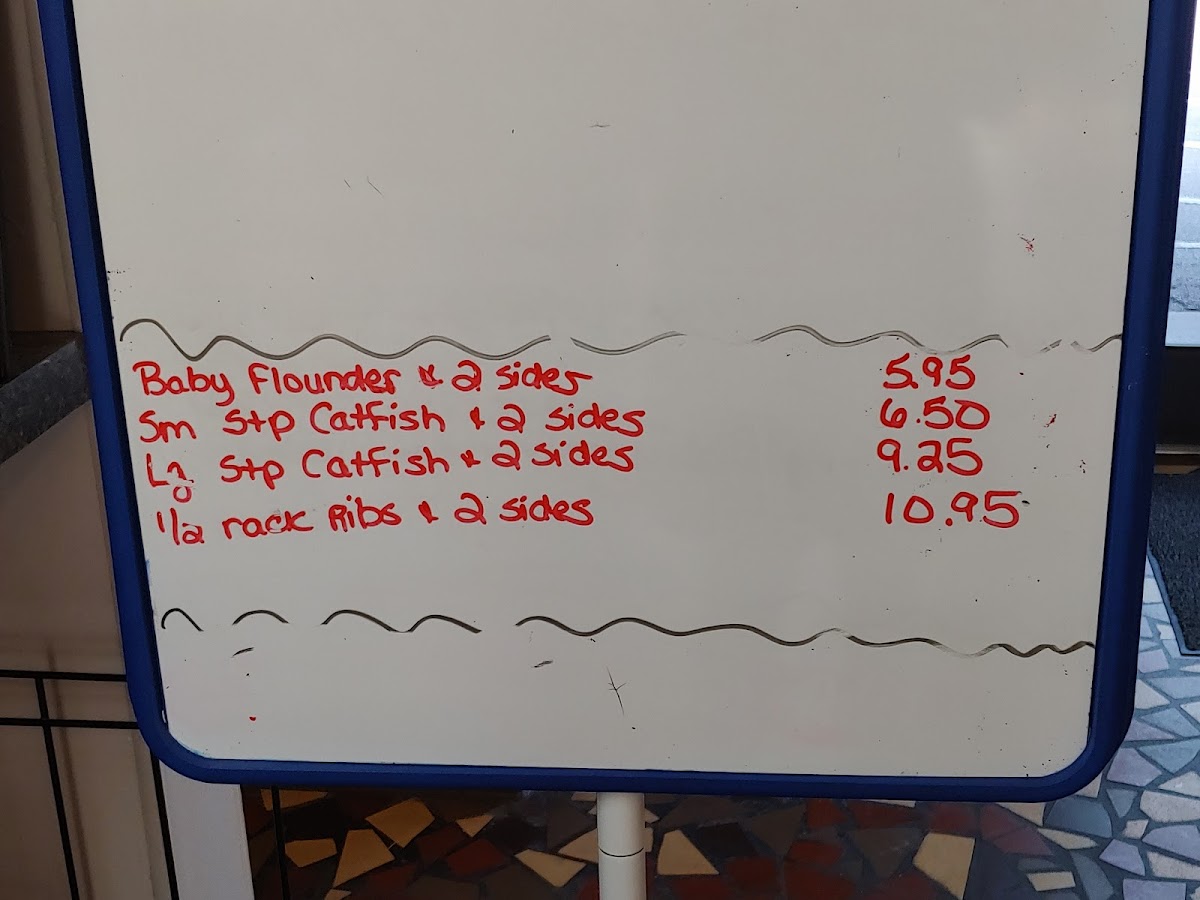 Baby Flounder & 2 sides 5.95
Sm Stp Catfish & 2 sides 6.50
Lg Stp Catfish & 2 sides 9.25
1/2 rack Ribs & 2 sides 10.95